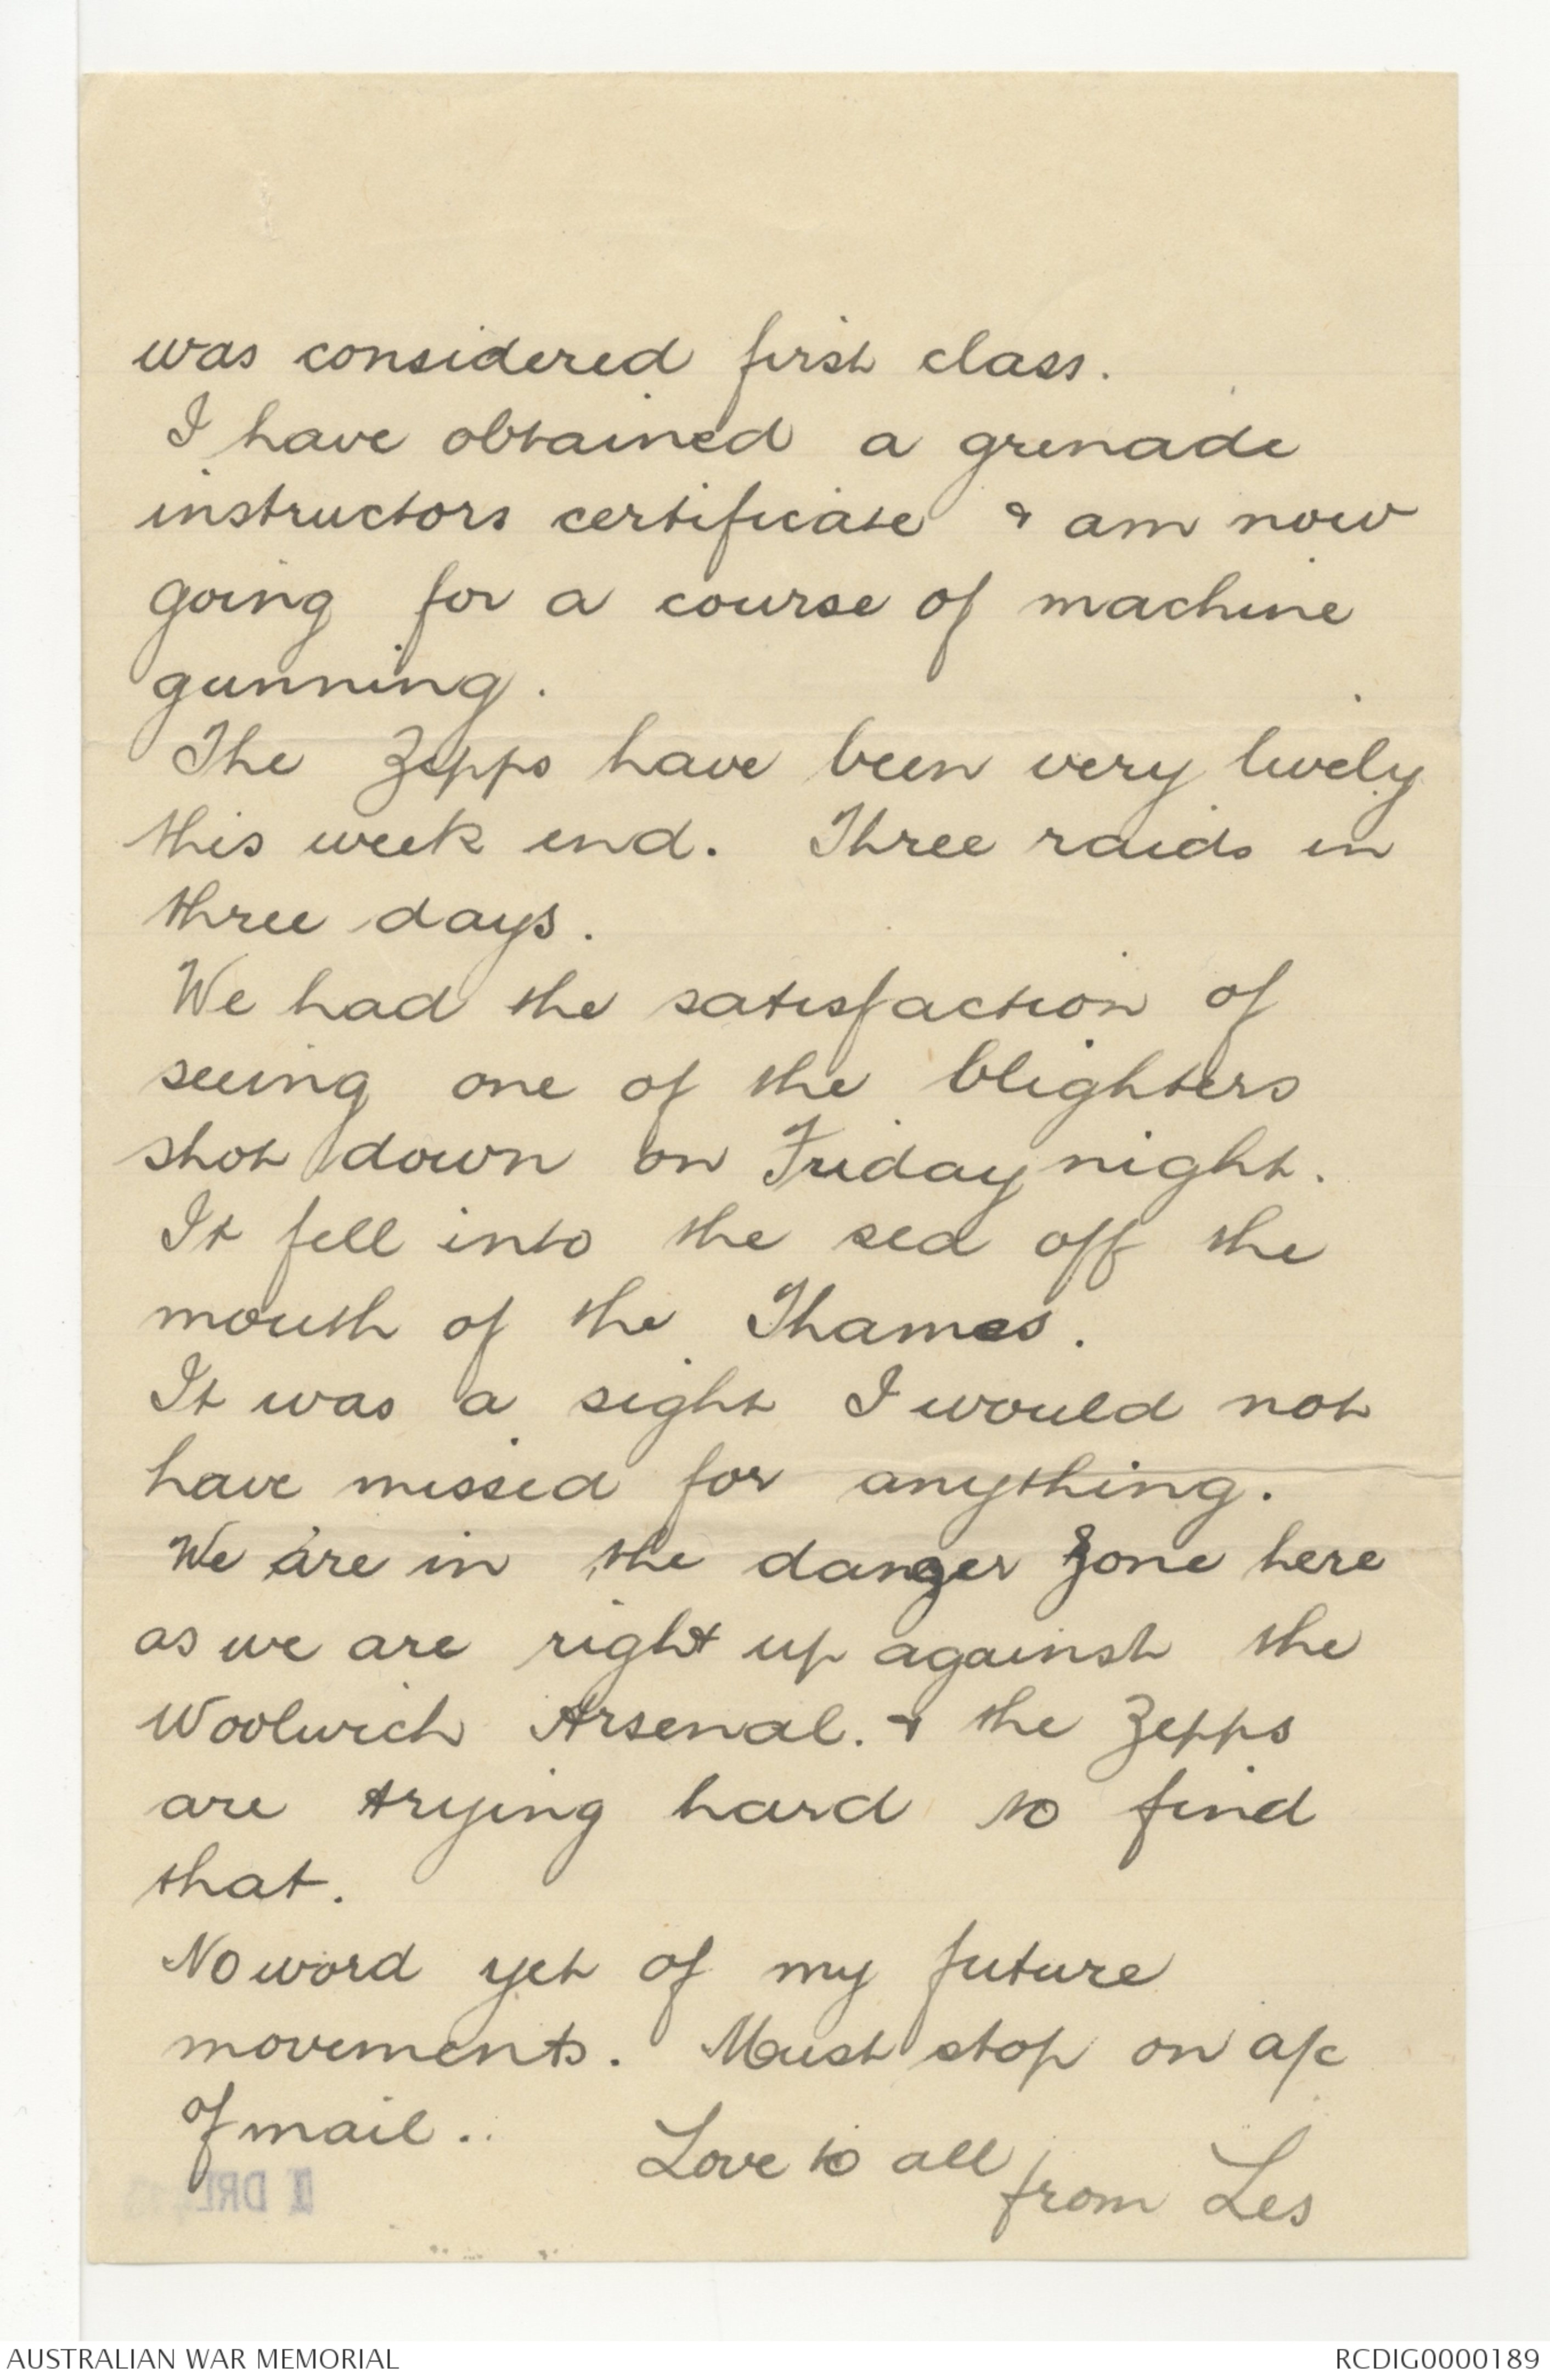 was considered first class.
I have obtained a grenade
instructors certificate & am now
going for a course of machine
gunning.
The Zepps have been very lively
this week end. Three raids in
three days.
We had the satisfaction of
seeing one of the blighters
shot down on Friday night.
It fell into the sea off the
mouth of the Thames.
It was a sight I would not
have missed for anything.
We are in the danger zone here
as we are right up against the
Woolwich Arsenal. & the Zepps
are trying hard to find
that.
No word yet of my future
movements. Must stop on a/c
of mail..
Love to all
from Les
DRL
AUSTRALIAN WAR MEMORIAL
RCDIG0000189